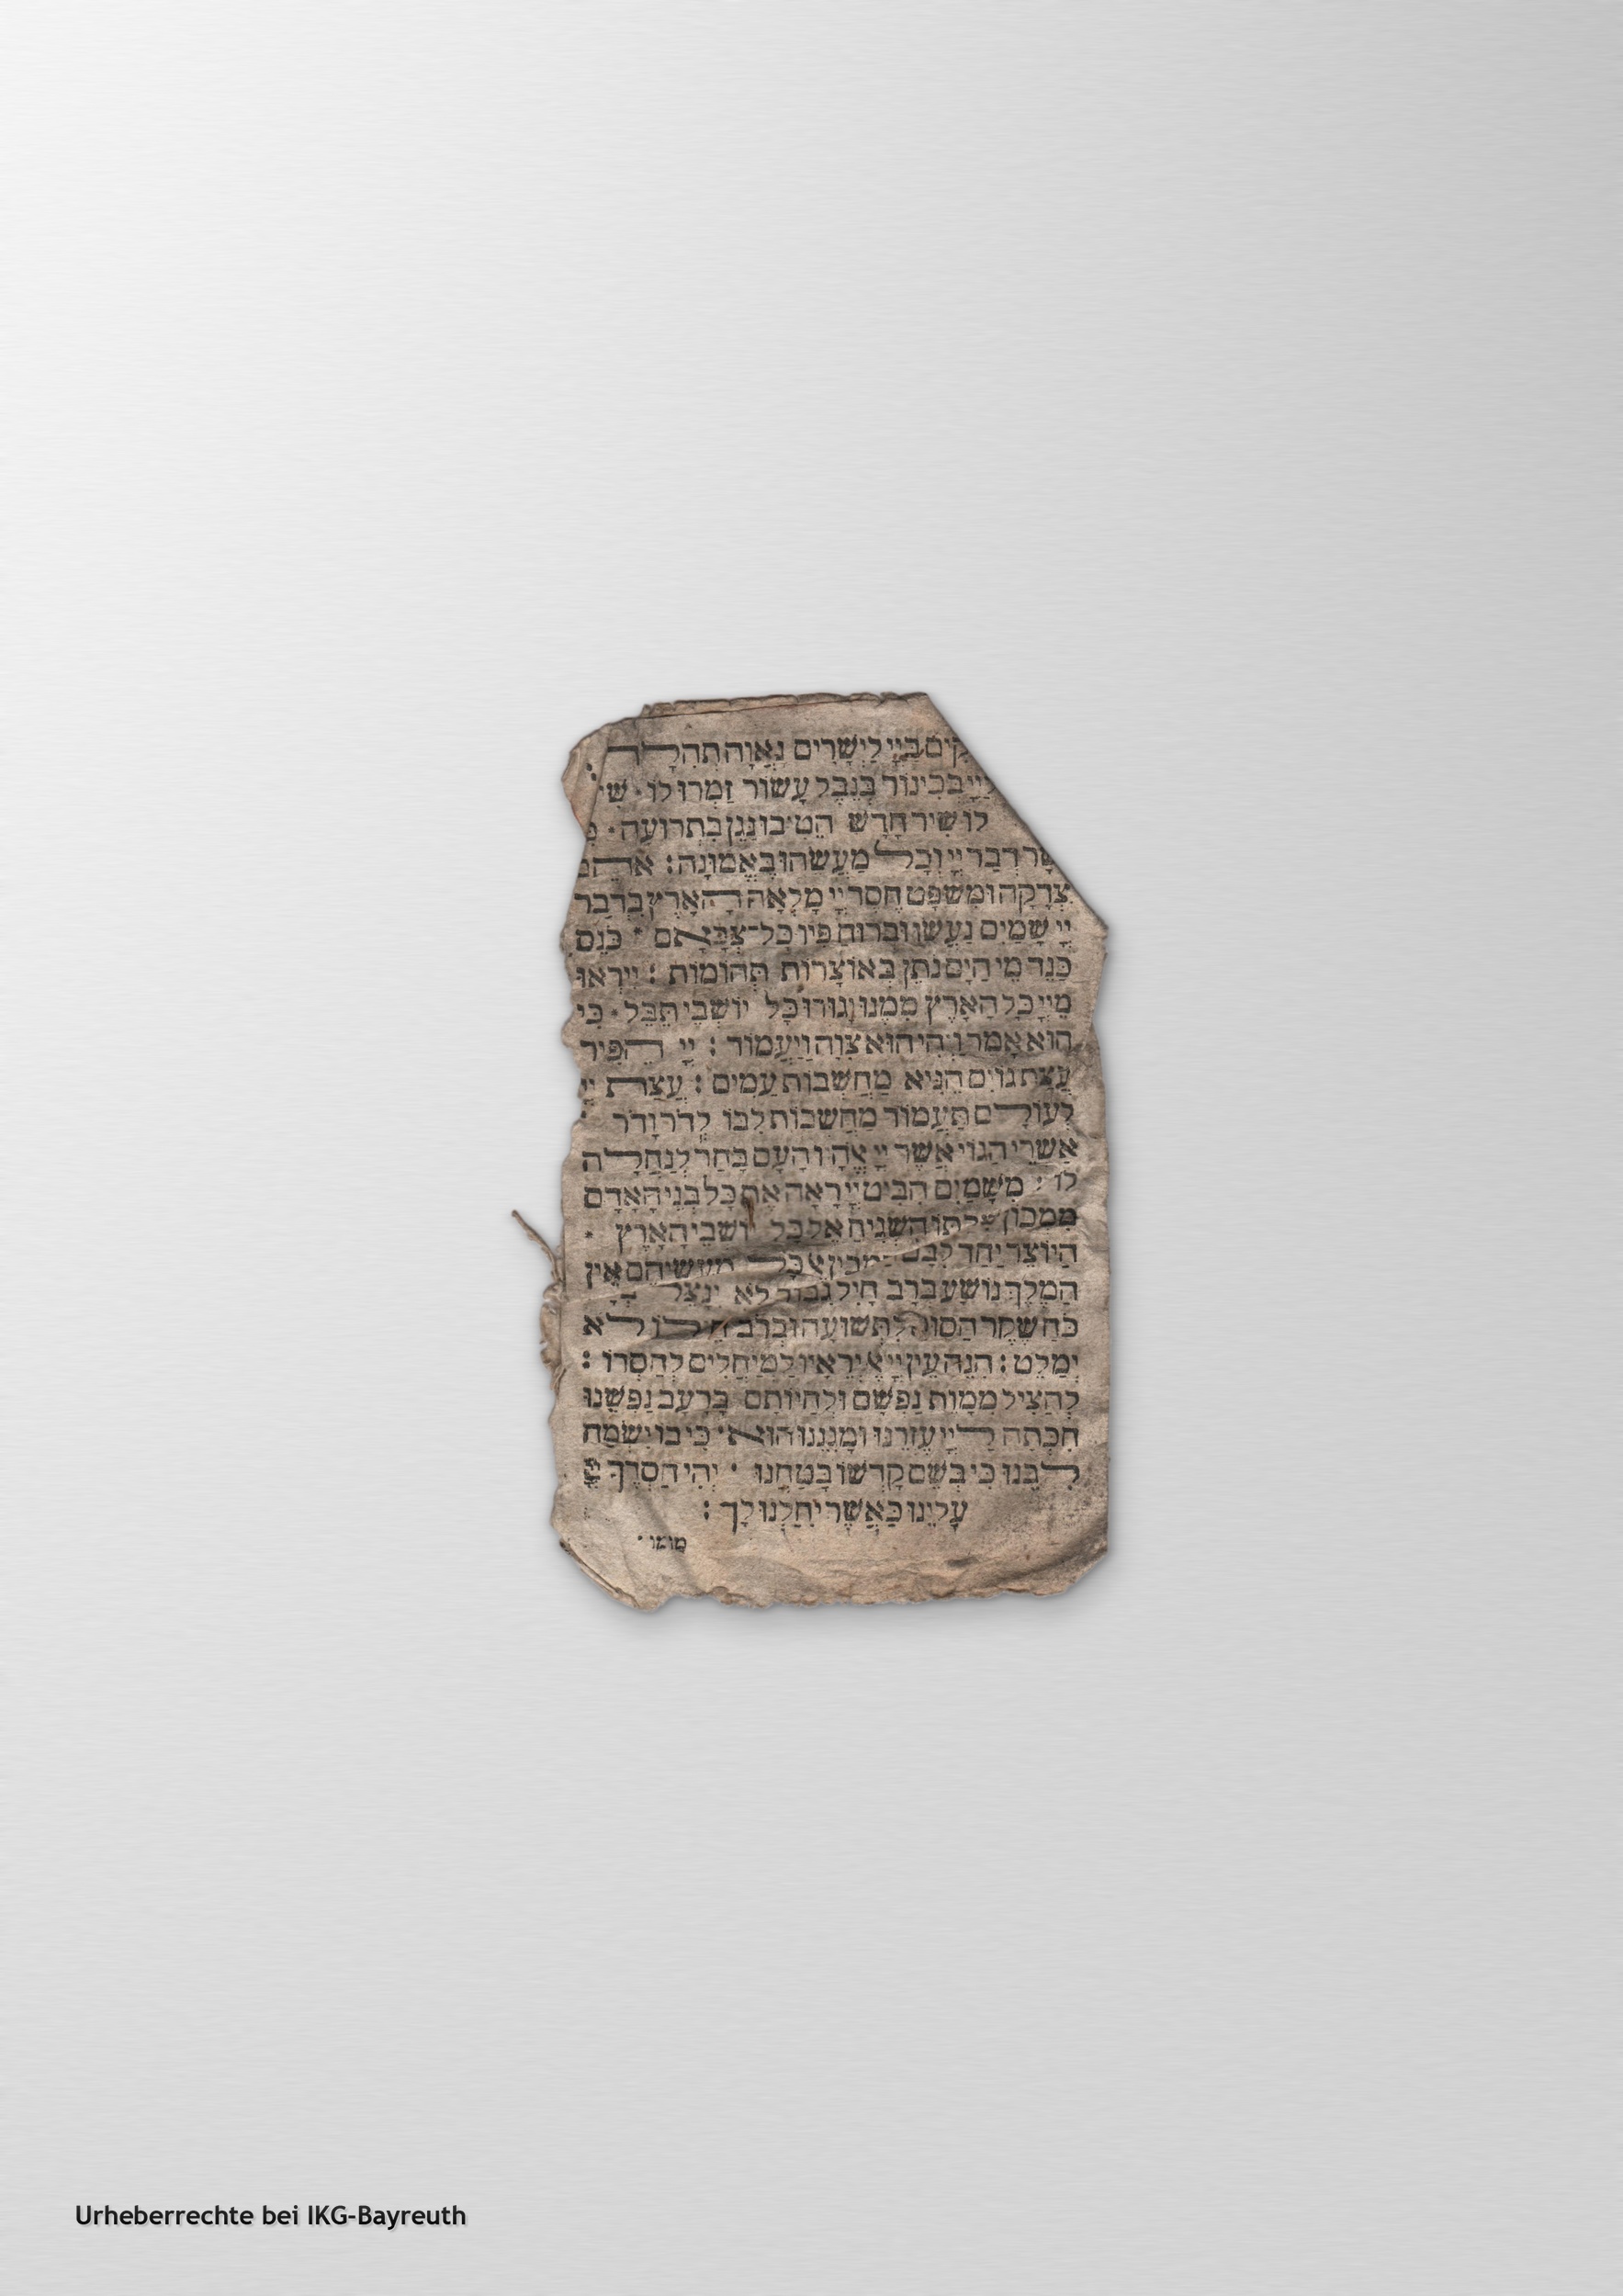 קִים בַּיְיָ לַיְשָׁרִים נָאוָה תְהִלָּה
לַיְיָ בְּכִינוֹר בְּנֵבֶל עָשׂוֹר זַמְּרוּ לוֹ · שִׁי
לוֹ שִׁיר חָדָשׁ הֵטִיבוּ נַגֵּן בִּתְרוּעָה · כִּ
שָׁר דְּבַר יְיָ וְכָל מַעֲשֵׂהוּ בֶּאֱמוּנָה : אֹהֵב
צְדָקָה וּמִשְׁפָּט חֶסֶד יְיָ מָלְאָה הָאָרֶץ בִּדְבַר
יְיָ שָׁמַיִם נַעֲשׂוּ וּבְרוּחַ פִּיו כָּל־צְבָאָם · כּוֹנֵס
כַּנֵּד מֵי הַיָּם נֹתֵן בְּאוֹצָרוֹת תְּהוֹמוֹת : יִירְאוּ
מֵיְיָ כָּל הָאָרֶץ מִמֶּנּוּ יָגוּרוּ כָּל יוֹשְׁבֵי תֵבֵל · כִּי
הוּא אָמַר וַיֶּהִי הוּא צִוָּה וַיַּעֲמוֹד : יְיָ הֵפִיר
עֲצַת גּוֹיִם הֵנִיא מַחְשְׁבוֹת עַמִּים : עֲצַת יְיָ
לְעוֹלָם תַּעֲמוֹד מַחְשְׁבוֹת לִבּוֹ לְדֹר וָדֹר
אַשְׁרֵי הַגּוֹי אֲשֶׁר יְיָ אֱלֹהָיו הָעָם בָּחַר לְנַחֲלָה
לוֹ : מִשָּׁמַיִם הִבִּיט יְיָ רָאָה אֶת כָּל בְּנֵי הָאָדָם
מִמְּכוֹן שִׁבְתּוֹ הִשְׁגִּיחַ אֶל כָּל יוֹשְׁבֵי הָאָרֶץ ·
הַיּוֹצֵר יַחַד לִבָּם הַמֵּבִין אֶל כָּל מַעֲשֵׂיהֶם אֵין
הַמֶּלֶךְ נוֹשָׁע בְּרָב חָיִל גִּבּוֹר לֹא יִנָּצֵל בְּרָב
כֹּחַ שֶׁקֶר הַסּוּס לִתְשׁוּעָה וּבְרֹב חֵילוֹ לֹא
יְמַלֵּט : הִנֵּה עֵין יְיָ אֶל יְרֵאָיו לַמְיַחֲלִים לְחַסְדּוֹ :
לְהַצִּיל מִמָּוֶת נַפְשָׁם וּלְחַיּוֹתָם בָּרָעָב נַפְשֵׁנוּ
חִכְּתָה לַיְיָ עֶזְרֵנוּ וּמָגִנֵּנוּ הוּא · כִּי בוֹ יִשְׂמַח
לִבֵּנוּ כִּי בְשֵׁם קָדְשׁוֹ בָטָחְנוּ · יְהִי חַסְדְּךָ יְיָ
עָלֵינוּ כַּאֲשֶׁר יִחַלְנוּ לָךְ :
Urheberrechte bei IKG-Bayreuth